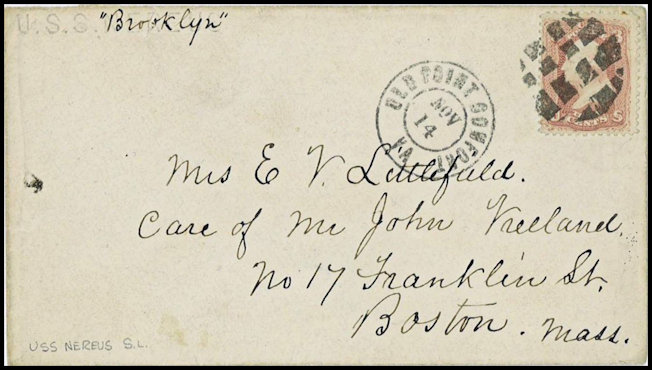 U.S.S. NEREUS
"Brooklyn"
OLD POINT COMFORT
NOV
14
VA.
CENTS
Mrs E V. Littlefield.
Care of Mr John Vreeland.
No 17 Franklin St.
Boston. Mass.
USS NEREUS S.L.